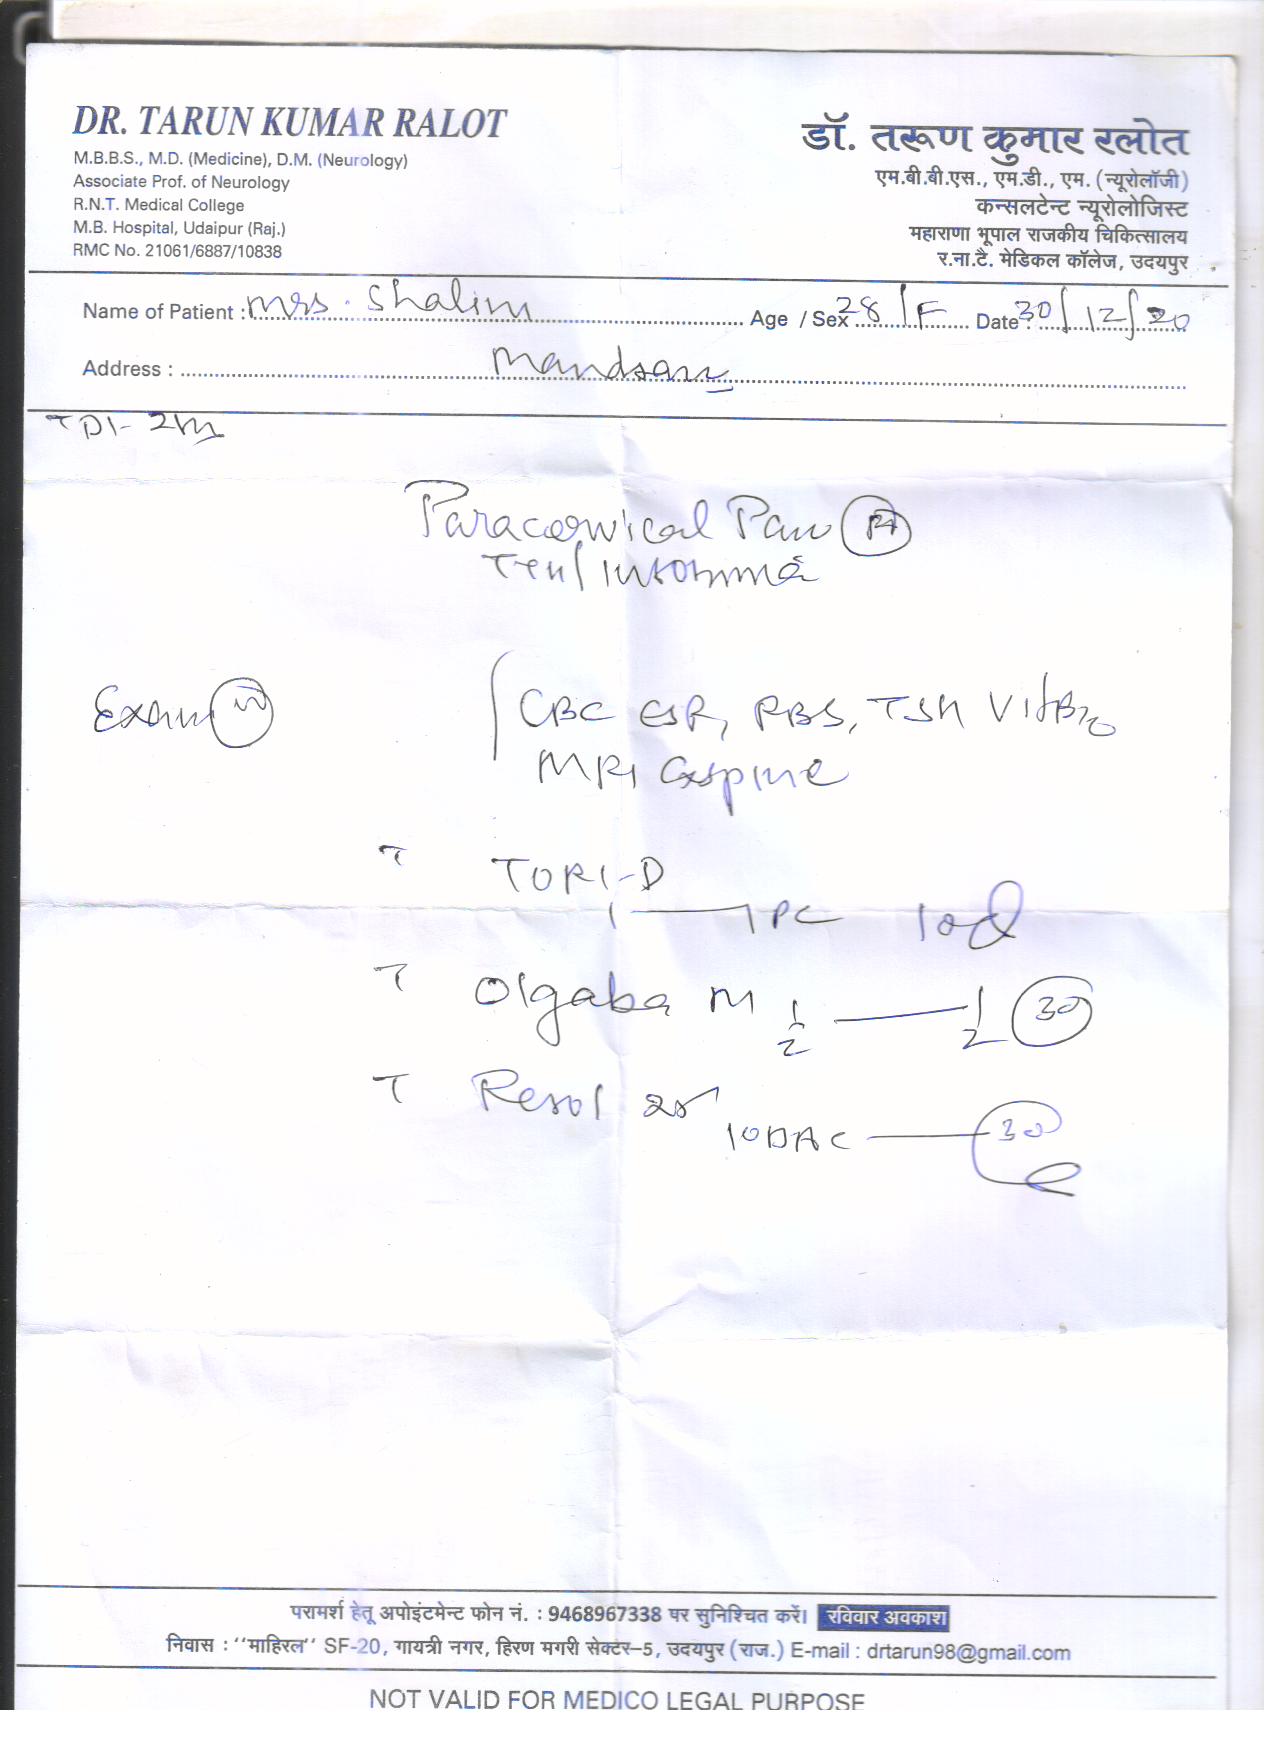 DR. TARUN KUMAR RALOT
M.B.B.S., M.D. (Medicine), D.M. (Neurology)
Associate Prof. of Neurology
R.N.T. Medical College
M.B. Hospital, Udaipur (Raj.)
RMC No. 21061/6887/10838
डॉ. तरूण कुमार रलोत
एम.बी.बी.एस., एम.डी., एम. (न्यूरोलॉजी)
कन्सलटेन्ट न्यूरोलोजिस्ट
महाराणा भूपाल राजकीय चिकित्सालय
र.ना.टै. मेडिकल कॉलेज, उदयपुर
Name of Patient : Mrs. Shalini Age / Sex 28/F Date : 30/12/20
Address : Mandsaur
Paracervical Pain
insomnia
Exam
CBC ESR, RBS, TSH Vit B12
MRI C spine
T TORI-D
1 — 1 PC 10d
T Olgaba M 1/2 — 1/2 30
T
10D AC — 30
परामर्श हेतू अपोइंटमेन्ट फोन नं. : 9468967338 पर सुनिश्चित करें। रविवार अवकाश
निवास : "माहिरल" SF-20, गायत्री नगर, हिरण मगरी सेक्टर-5, उदयपुर (राज.) E-mail : drtarun98@gmail.com
NOT VALID FOR MEDICO LEGAL PURPOSE